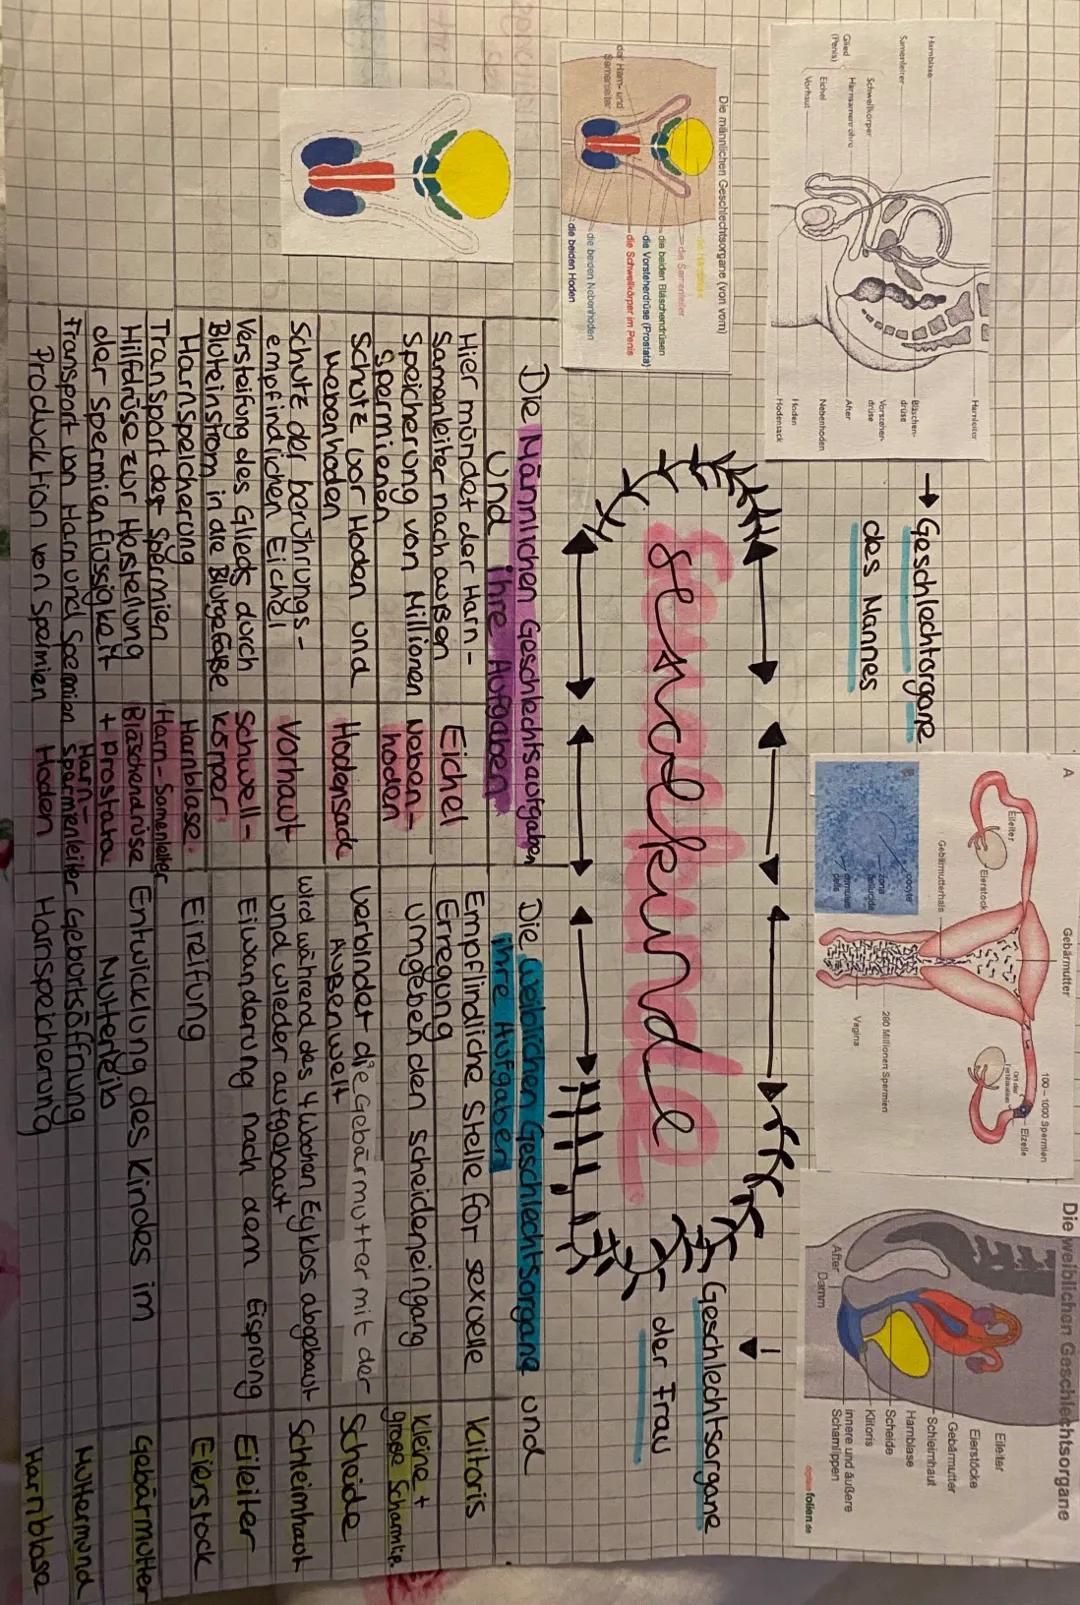 → Geschlechtorgane
des Mannes
Harnblase
Samenleiter
Schwellkörper
Glied
(Penis)
Harnsamenröhre
Eichel
Vorhaut
Harnleiter
Bläschen-
drüse
Vorsteher-
drüse
After
Nebenhoden
Hoden
Hodensack
A
Gebärmutter
100 – 1000 Spermien
Eileiter
Eierstock
Eizelle
Gebärmutterhals
280 Millionen Spermien
Vagina
oocyte
zona
pellucida
cumulus
cells
Die weiblichen Geschlechtsorgane
Eileiter
Eierstöcke
Gebärmutter
Schleimhaut
Harnblase
Scheide
Klitoris
innere und äußere
Schamlippen
After
Damm
folien.de
Die männlichen Geschlechtsorgane (von vorn)
die Harnblase
die Samenleiter
die beiden Bläschendrüsen
die Vorsteherdrüse (Prostata)
die Schwellkörper im Penis
die beiden Nebenhoden
die beiden Hoden
der Harn- und
Samenleiter
Sexualkunde
Geschlechtsorgane
der Frau
Die Männlichen Geschlechtsaufgaben
und ihre Aufgaben
Die weiblichen Geschlechtsorgane und
ihre Aufgaben
Hier mündet der Harn-
Samenleiter nach außen
Eichel
Empfindliche Stelle for sexuelle
Erregung
Klitoris
Speicherung von Millionen
Spermienen
Neben-
hoden
Umgeben den scheideneingang
Kleine +
große Schamlip.
Schutz vor Hoden und
Nebenhoden
Hodensack
Verbindet die Gebärmutter mit der
Außenwelt
Scheide
Schutz der berührungs-
empfindlichen Eichel
Vorhaut
Wird während des 4 wochen Zyklos abgebaut
und wieder aufgebaut
Schleimhaut
Versteifung des Glieds durch
Bluteinstrom in die Blutgefäße
Schwell-
körper
Eiwanderung nach dem Eisprung
Eileiter
Harnspeicherung
Harnblase
Eireifung
Eierstock
Transport der Spermien
Harn-Samenleiter
Hilfdrüse zur Herstellung
der Spermienflüssigkeit
Bläschendrüse
+ Prostata
Entwicklung des Kindes im
Mutterleib
Gebärmutter
Transport von Harn und Spermien
Harn-
spermienleiter
Geburtsöffnung
Muttermund
Producktion von Speimien
Hoden
Harnspeicherung
Harnblase